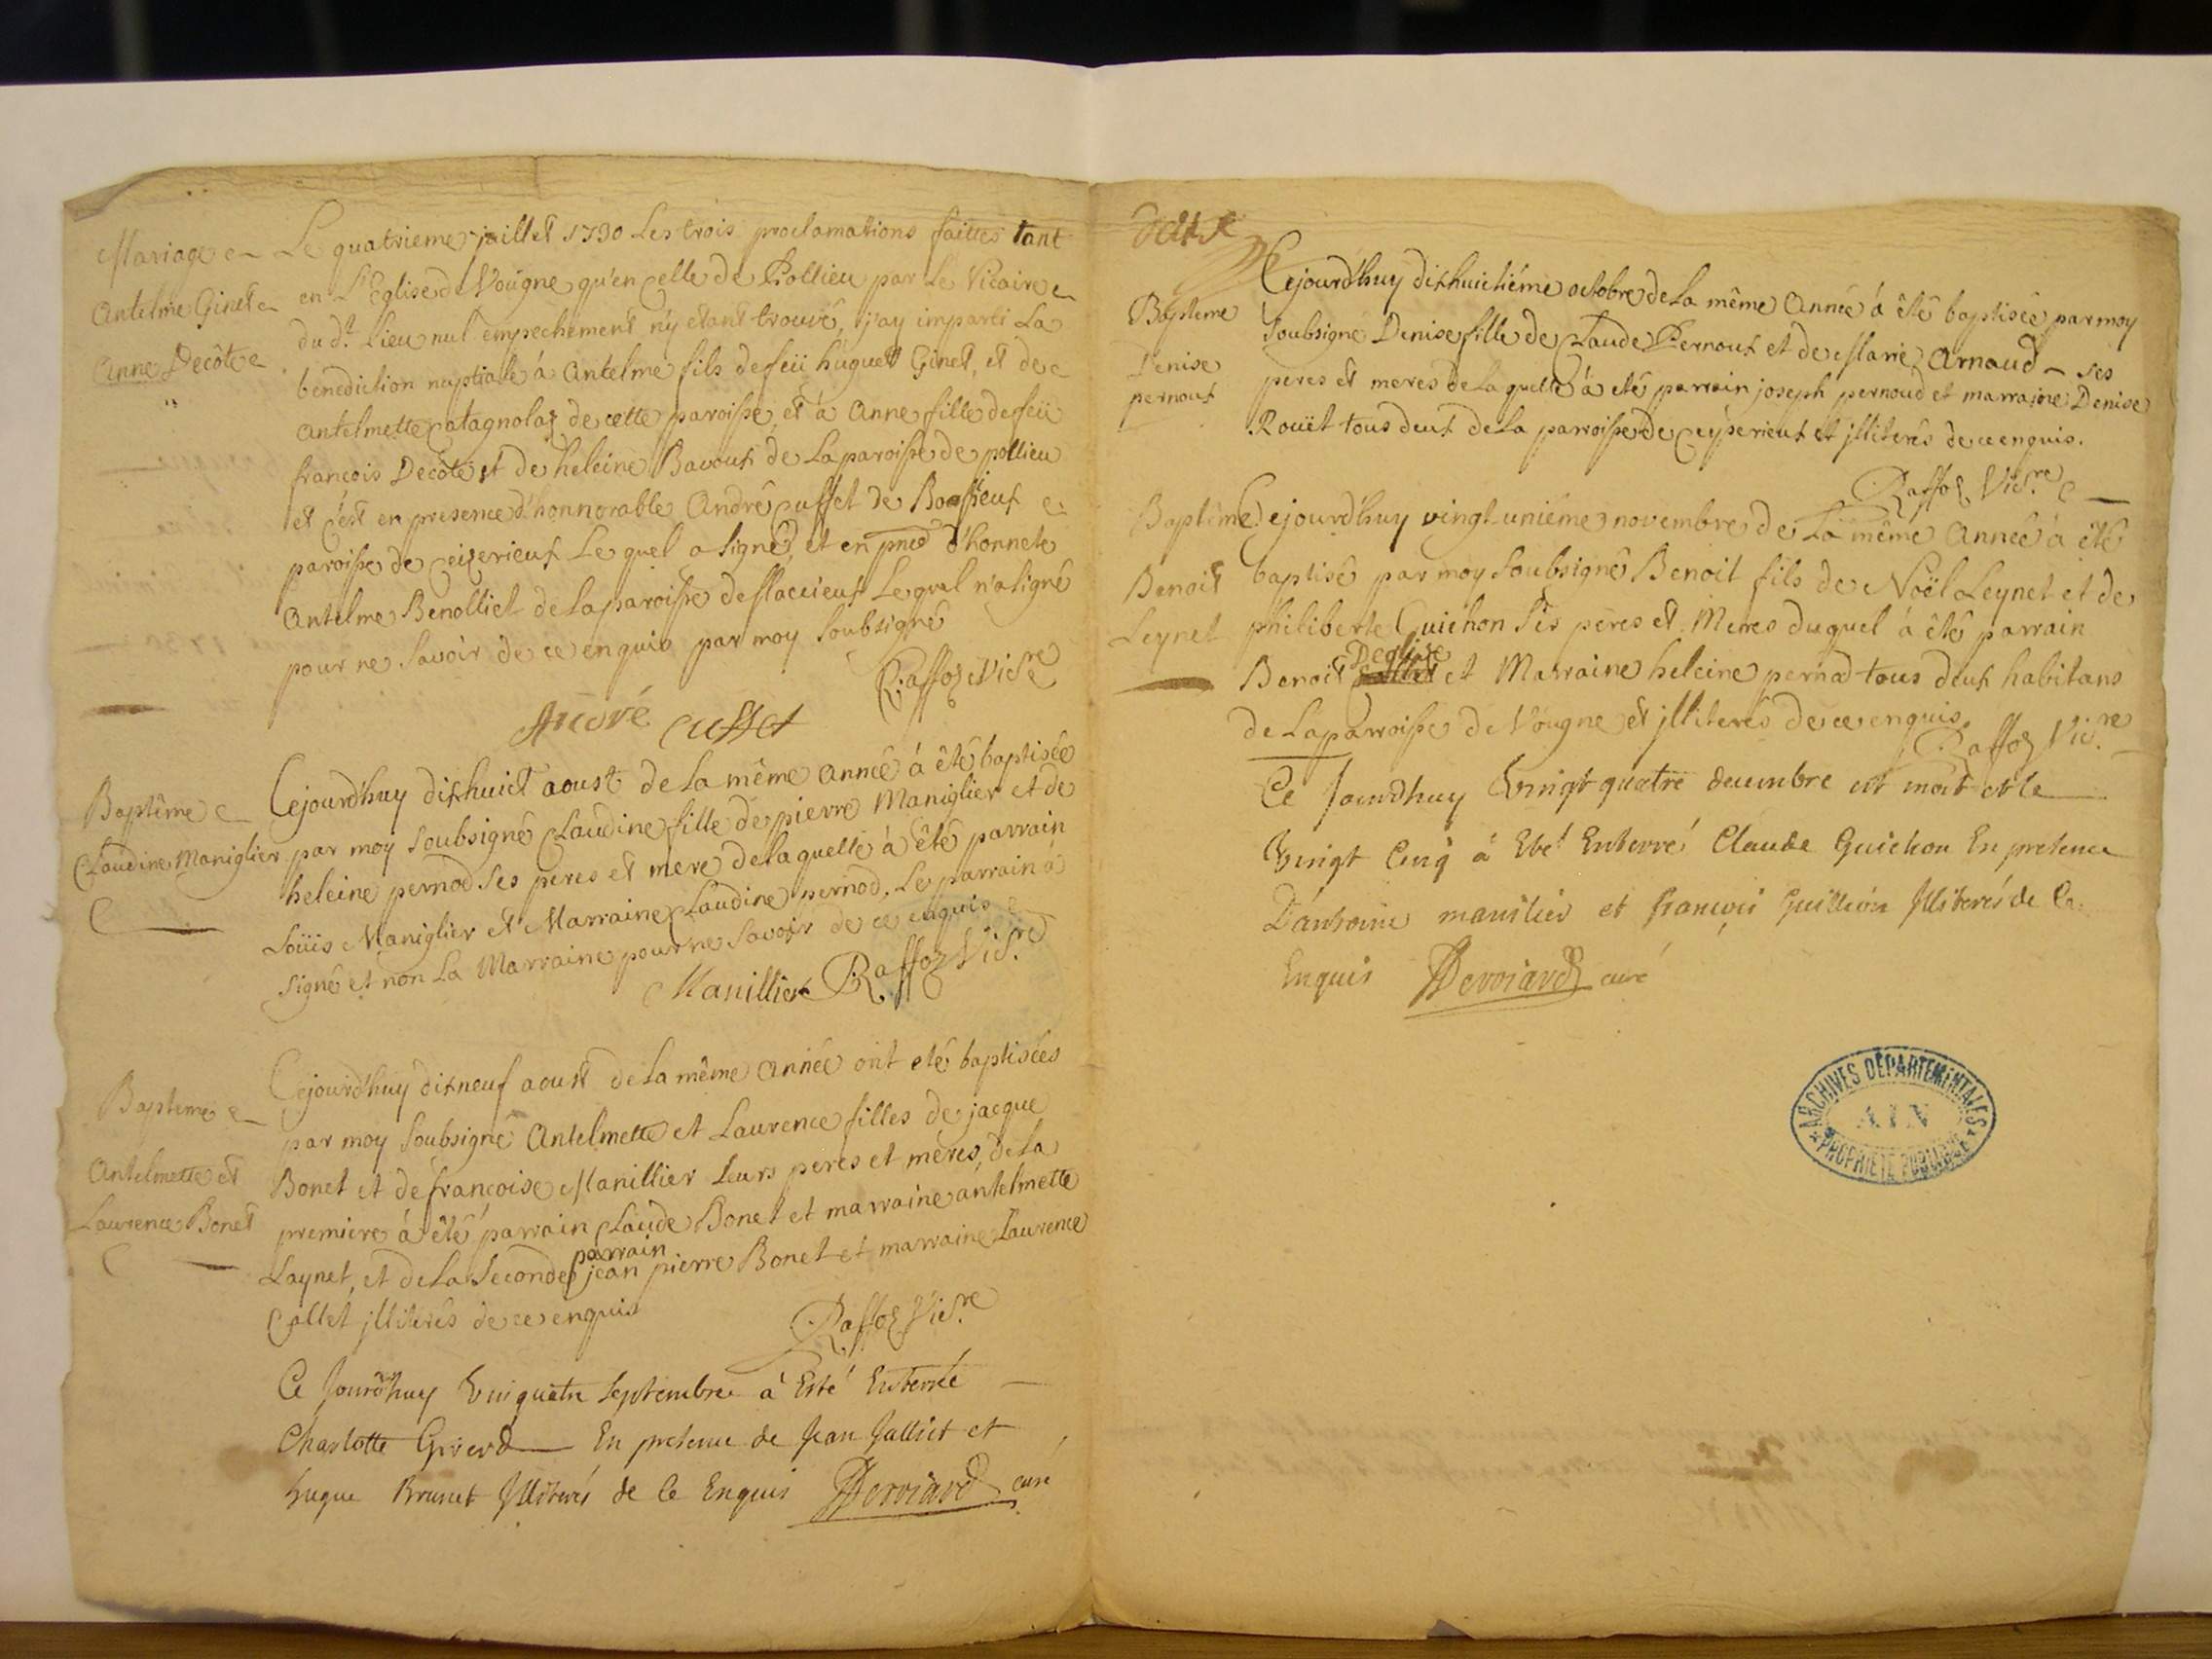 Mariage
Antelme Ginet
Anne Decôte
Le quatrieme juillet 1730 Les trois proclamations faittes tant
en L'Eglise de Vougne qu'en celle de Pollieu par Le Vicaire
du d.t Lieu nul empechement n'y etant trouvé, j'ay imparti La
benediction nuptiale à Antelme fils de feü huguet Ginet, et de
antelmette catagnolaz de cette paroisse, et à Anne fille de feü
françois Decôte et de heleine Bavouf de La paroisse de pollieu
et c'est en presence d'honnorable André cuffet de
paroisse de Ceizerieux Le quel a signé, et en pnce d'honnete
Antelme Benolliet de La paroisse de flaccieux Le quel n'a signé
pour ne savoir de ce enquis par moy soubsigné
Raffoz Vicre
André cuffet
Baptême
Claudine Maniglier
Cejourd'huy dixhuict aoust de la même année à êté baptisée
par moy soubsigné Claudine fille de pierre Maniglier et de
heleine pernod ses peres et mere de la quelle à êté parrain
Loüis Maniglier et Marraine Claudine pernod. Le parrain à
signé et non La Marraine pour ne savoir de ce enquis
Manillier Raffoz Vicre
Bapteme
Antelmette et
Laurence Bonet
Cejourd'huy dixneuf aoust de la même année ont eté baptisées
par moy soubsigné Antelmette et Laurence filles de jacque
Bonet et de françoise Manillier Leurs peres et méres, de la
premiere à êté parrain Claude Bonet et marraine antelmette
Laynet, et de la seconde parrain jean pierre Bonet et marraine Laurence
Collet jlliterés de ce enquis
Raffoz Vicre
Ce Jourdhuy Vinquatre septembre à Esté Enterrée
Charlotte Girerd En presence de Jean Jalliet et
hugue Brunet Jlliterés de Ce Enquis Derviard curé
Bapteme
Denise
pernoux
Cejourd'huy dixhuictiéme octobre de La même Année à êté baptisée par moy
soubsigné Denise fille de Claude Pernoux et de Marie Arnaud ses
peres et meres de la quelle à eté parrain joseph pernoud et marraine Denise
Rouët tous deux de la parroisse de ceyzerieux et jlliterés de ce enquis.
Raffoz Vicre
Baptême
Benoit
Leynet
Cejourd'huy vingt-uniéme novembre de La même Année à êté
baptisé par moy soubsigné Benoit fils de Noël Leynet et de
philiberte Guichon ses peres et Meres duquel à êté parrain
Benoit Deglise et Marraine heleine pernod tous deux habitans
de La parroisse de Vougne et jlliterés de ce enquis
Raffoz Vicre
Ce Jourdhuy Vingt quatre decembre est mort et le
Vingt Cinq à Eté Enterré Claude Guichon En presence
D'antoine manilier et françois Guillion Jlliterés de Ce
Enquis Derviard curé
ARCHIVES DÉPARTEMENTALES
AIN
PROPRIÉTÉ PUBLIQUE